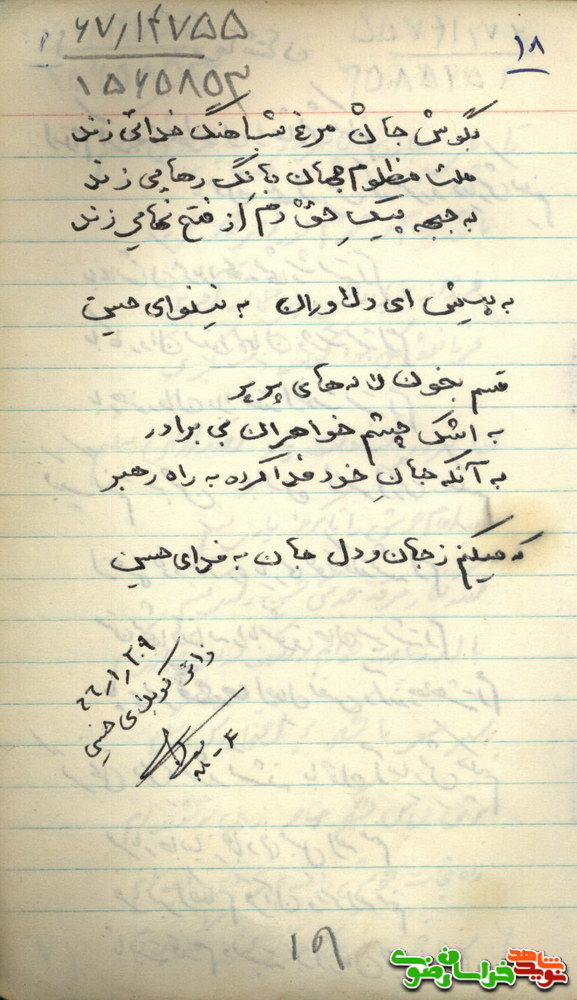 ۶۷/۱۴۷۵۵
۱۸
۱۵۶۵۸۵۳
بگوش جان مرغ شباهنگ خدائی زند
ملت مظلوم جهان بانگ رهایی زند
به جبهه پیکِ حقْ دم از فتح نهایی زند
به پیش ای دلاوران به نینوای حسین
قسم بخون لاله‌های پرپر
به اشک چشم خواهران بی برادر
به آنکه جانِ خود فدا کرده به راه رهبر
که میکنم ز جان و دل جان به فدای حسین
زائر کربلای خمینی
۱۹
نوید شاهد خراسان رضوی